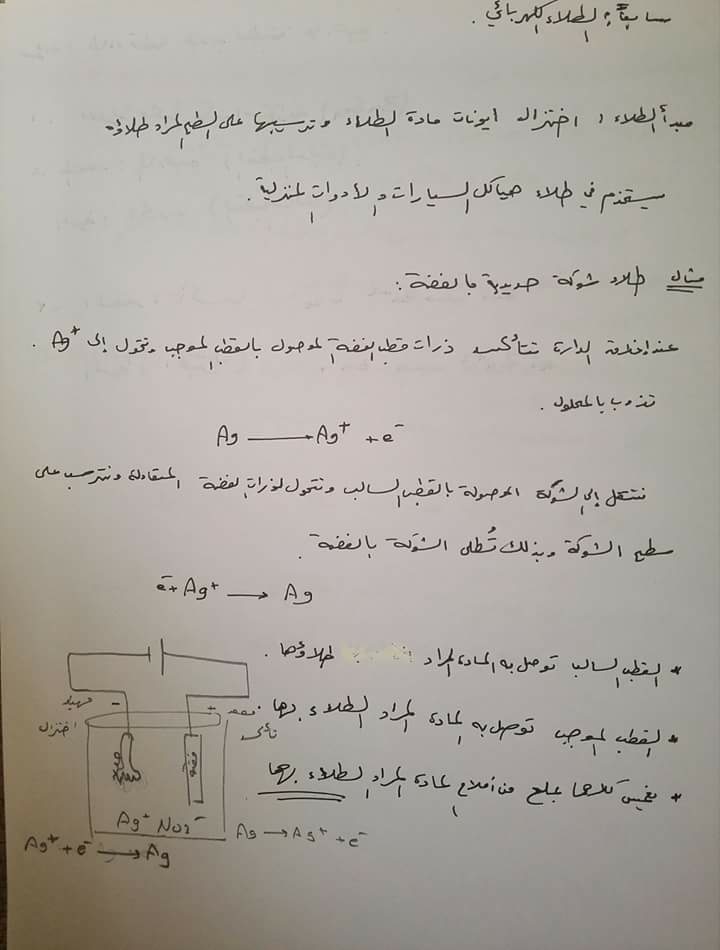 سابعاً: الطلاء الكهربائي.
مبدأ الطلاء: اختزال ايونات مادة الطلاء وترسيبها على السطح المراد طلاؤه
يستخدم في طلاء هياكل السيارات والأدوات المنزلية.
مثال طلاء شوكة حديدية بالفضة:
عند إغلاق الدارة تتأكسد ذرات قطب الفضة الموصول بالقطب الموجب وتتحول إلى Ag⁺.
تذوب بالمحلول.
Ag ⟶ Ag⁺ + e⁻
تنتقل إلى الشوكة الموصولة بالقطب السالب وتتحول لذرات الفضة المتعادلة وتترسب على
سطح الشوكة وبذلك تُطلى الشوكة بالفضة.
e⁻ + Ag⁺ ⟶ Ag
* القطب السالب توصل به المادة المراد طلاؤها.
* القطب الموجب توصل به المادة المراد الطلاء بها.
* يغمس كلاهما بملح من أملاح المادة المراد الطلاء بها
مهبط - + مصعد
اختزال تأكسد
فضة
Ag⁺ NO₃⁻
Ag → Ag⁺ + e⁻
Ag⁺ + e⁻ → Ag